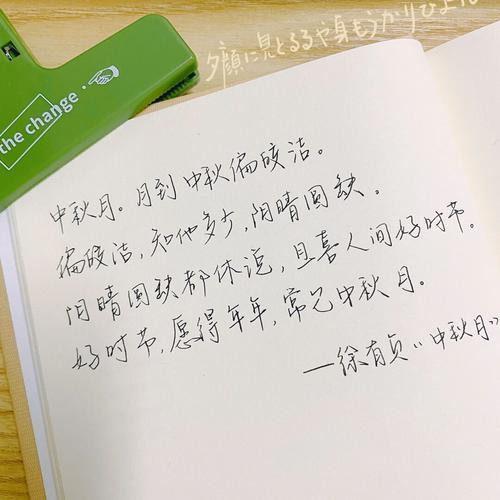 夕顔に見とるるや身もうかりひょ
the change
中秋月。月到中秋偏皎洁。
偏皎洁,知他多少,阴晴圆缺。
阴晴圆缺都休说,且喜人间好时节。
好时节,愿得年年,常见中秋月。
—徐有贞《中秋月》